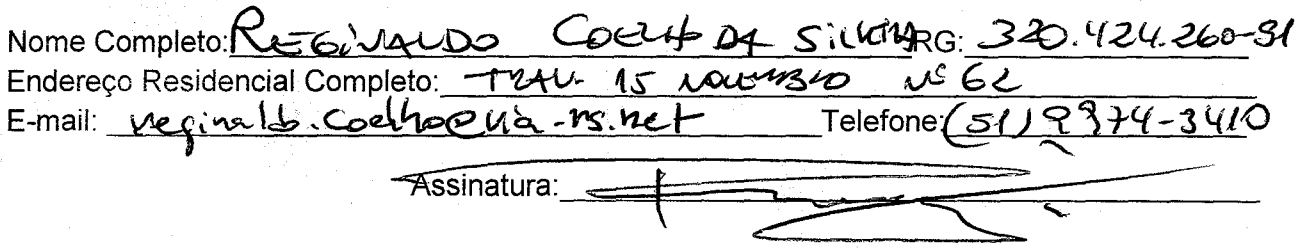 Nome Completo: REGINALDO COELHO DA SILVEIRA RG: 320.424.260-91
Endereço Residencial Completo: TRAV. 15 NOVEMBRO Nº 62
E-mail: reginaldo.coelho@via-rs.net Telefone: (51) 9974-3410
Assinatura: